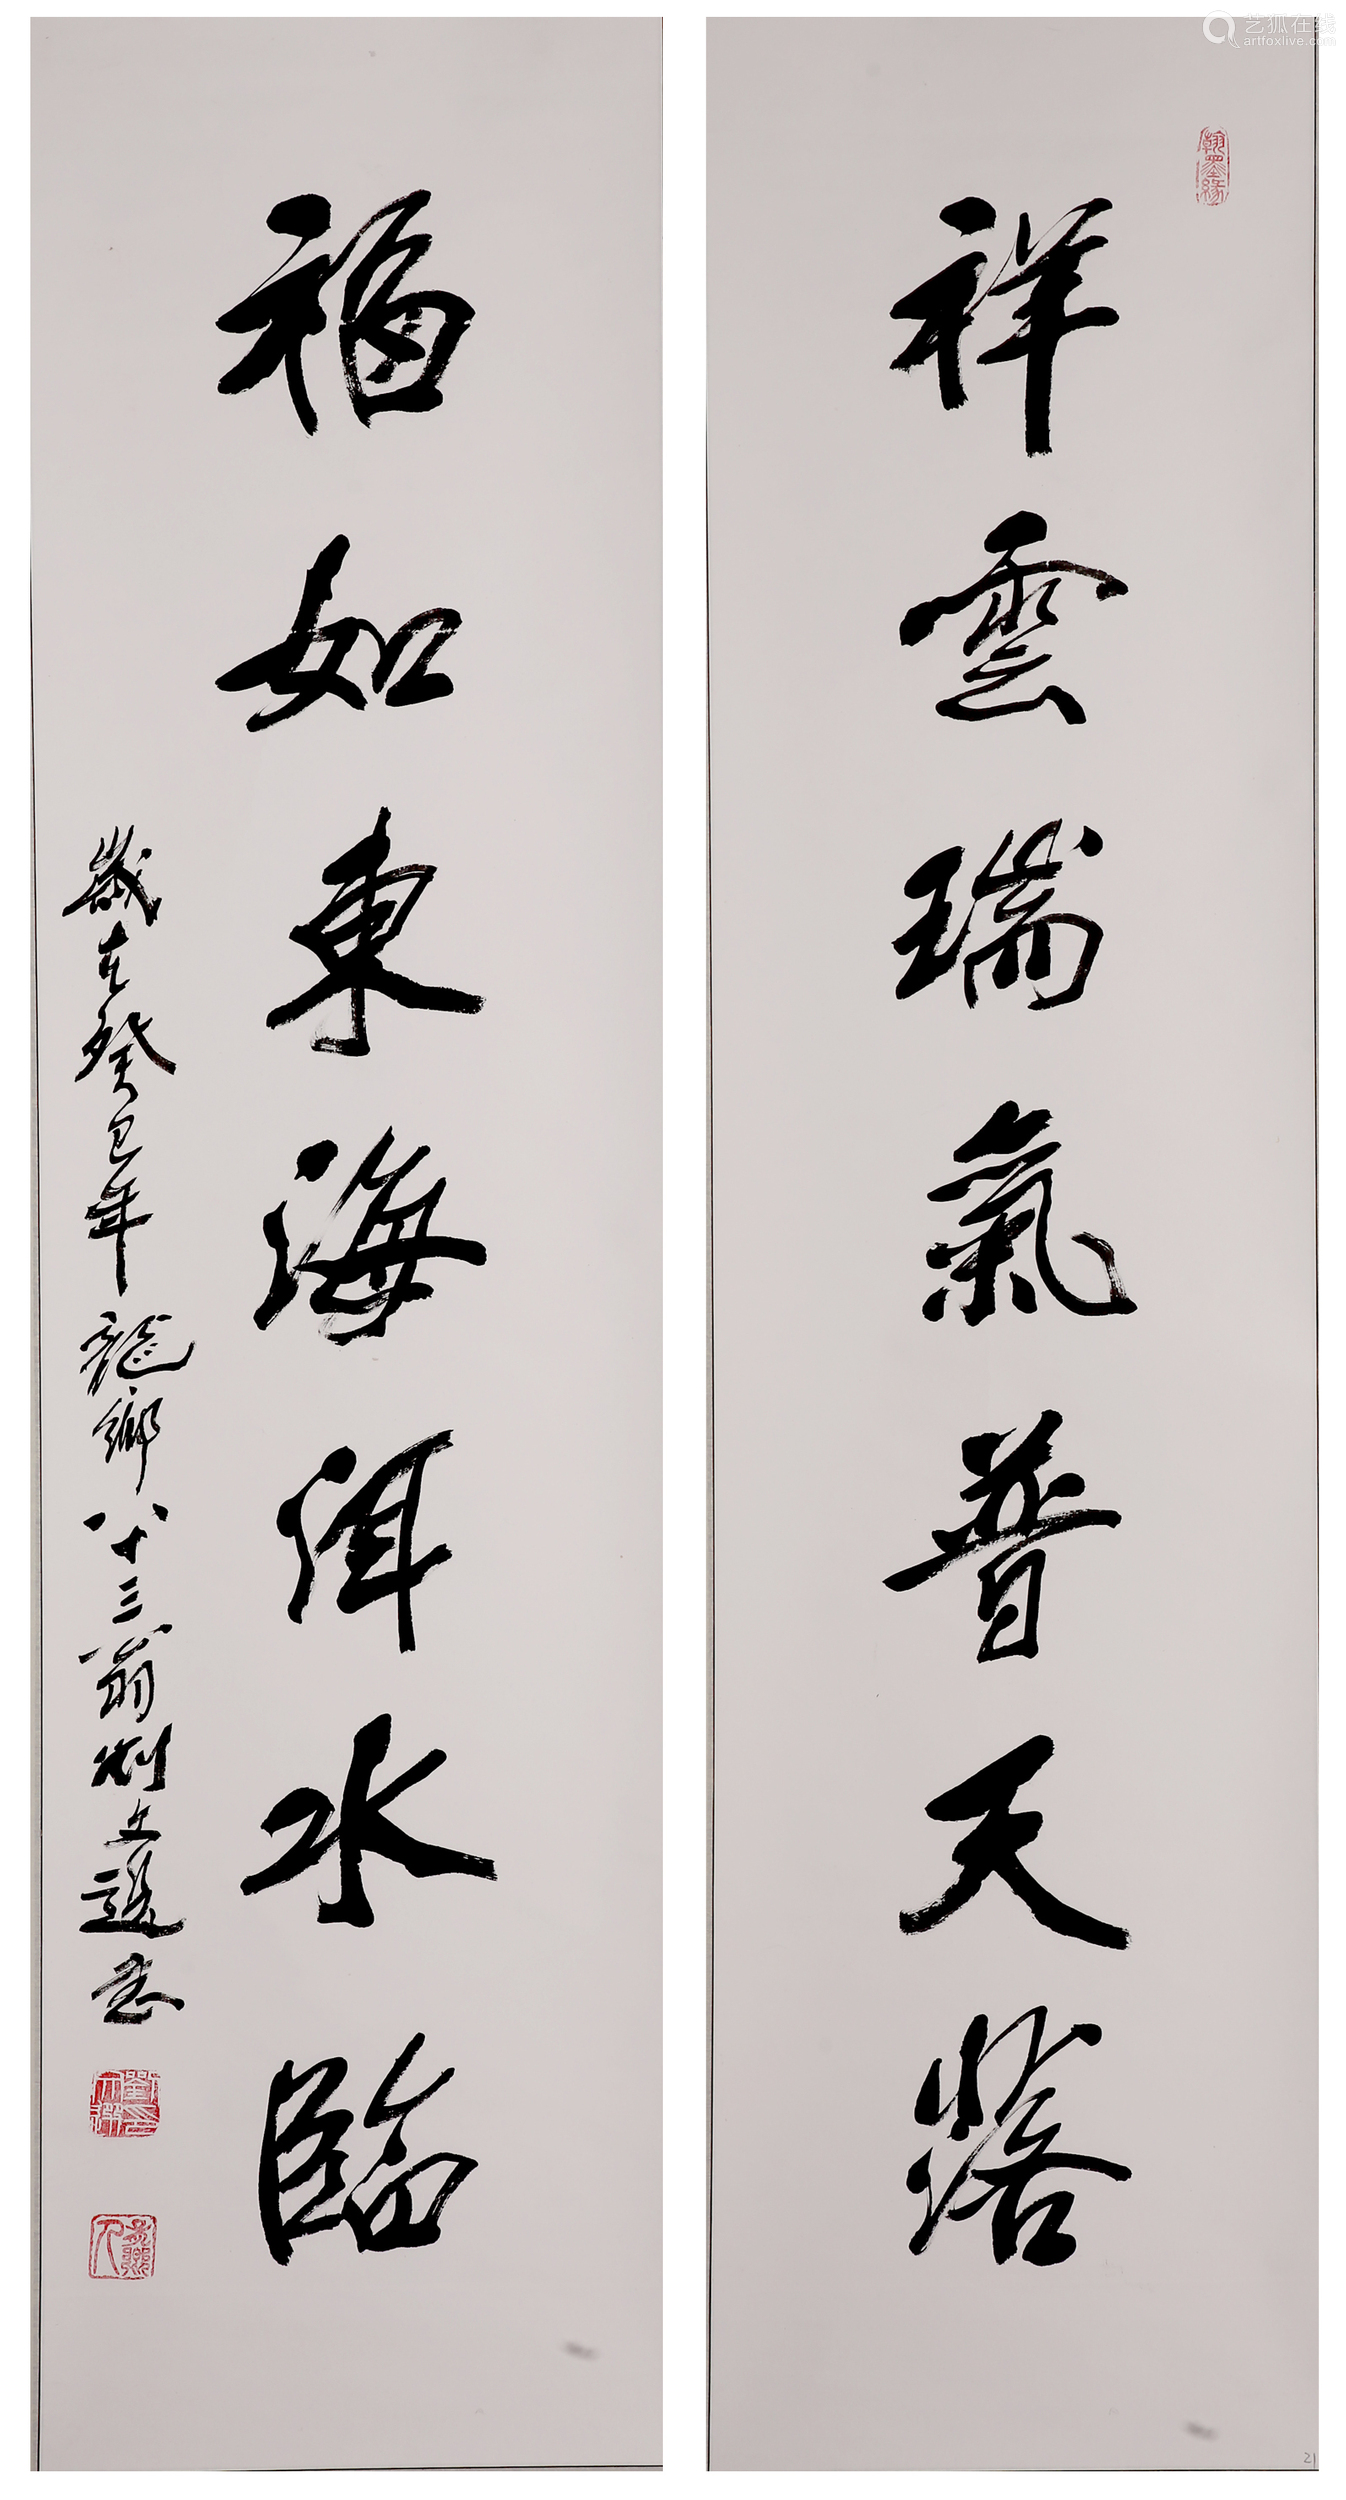 祥雲瑞氣普天落
福如東海洱水臨
歲在癸巳年龍鄉八十三翁劉
翰墨緣
艺狐在线
artfoxlive.com
21